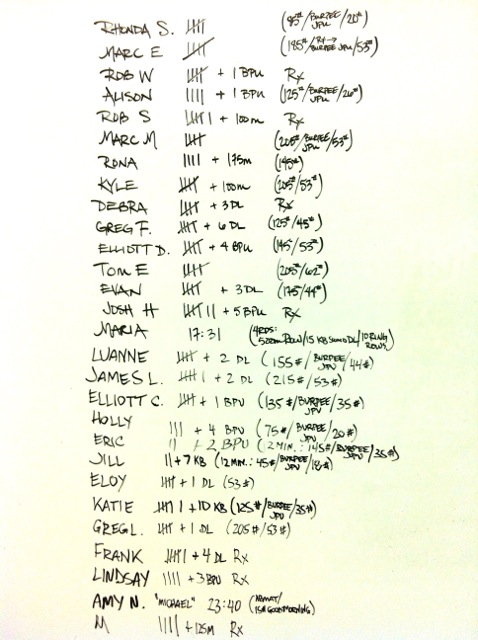 RHONDA S. 卌 (95#/BURPEE JPU/20#)
MARC E 卌 (185#/Rx→ BURPEE JPU/53#)
ROB W 卌 + 1 BPU Rx
ALISON |||| + 1 BPU (125#/BURPEE JPU/26#)
ROB S 卌| + 100m Rx
MARC M 卌 (205#/BURPEE JPU/53#)
RONA |||| + 175m (145#)
KYLE 卌 + 100m (205#/53#)
DEBRA 卌 + 3 DL Rx
GREG F. 卌 + 6 DL (125#/45#)
ELLIOTT D. 卌 + 4 BPU (195/53#)
TOM E 卌 (205#/62#)
EVAN 卌 + 3 DL (175/44#)
JOSH H 卌|| + 5 BPU Rx
MARIA 17:31 (4RDS: 500m ROW/15 KB SUMO DL/10 RING ROWS)
LUANNE 卌 + 2 DL (155#/BURPEE JPU/44#)
JAMES L. 卌| + 2 DL (215#/53#)
ELLIOTT C. 卌 + 1 BPU (135#/BURPEE JPU/35#)
HOLLY ||| + 4 BPU (75#/BURPEE JPU/20#)
ERIC || + 2 BPU (12 MIN.: 145#/BURPEE JPU/35#)
JILL || + 7 KB (12 MIN.: 45#/BURPEE JPU/18#)
ELOY 卌 + 1 DL (53#)
KATIE 卌| + 10 KB (125#/BURPEE JPU/35#)
GREG L. 卌 + 1 DL (205#/53#)
FRANK 卌| + 4 DL Rx
LINDSAY |||| + 3 BPU Rx
AMY N. "MICHAEL" 23:40 (ABMAT/15# GOODMORNING)
M |||| + 125m Rx